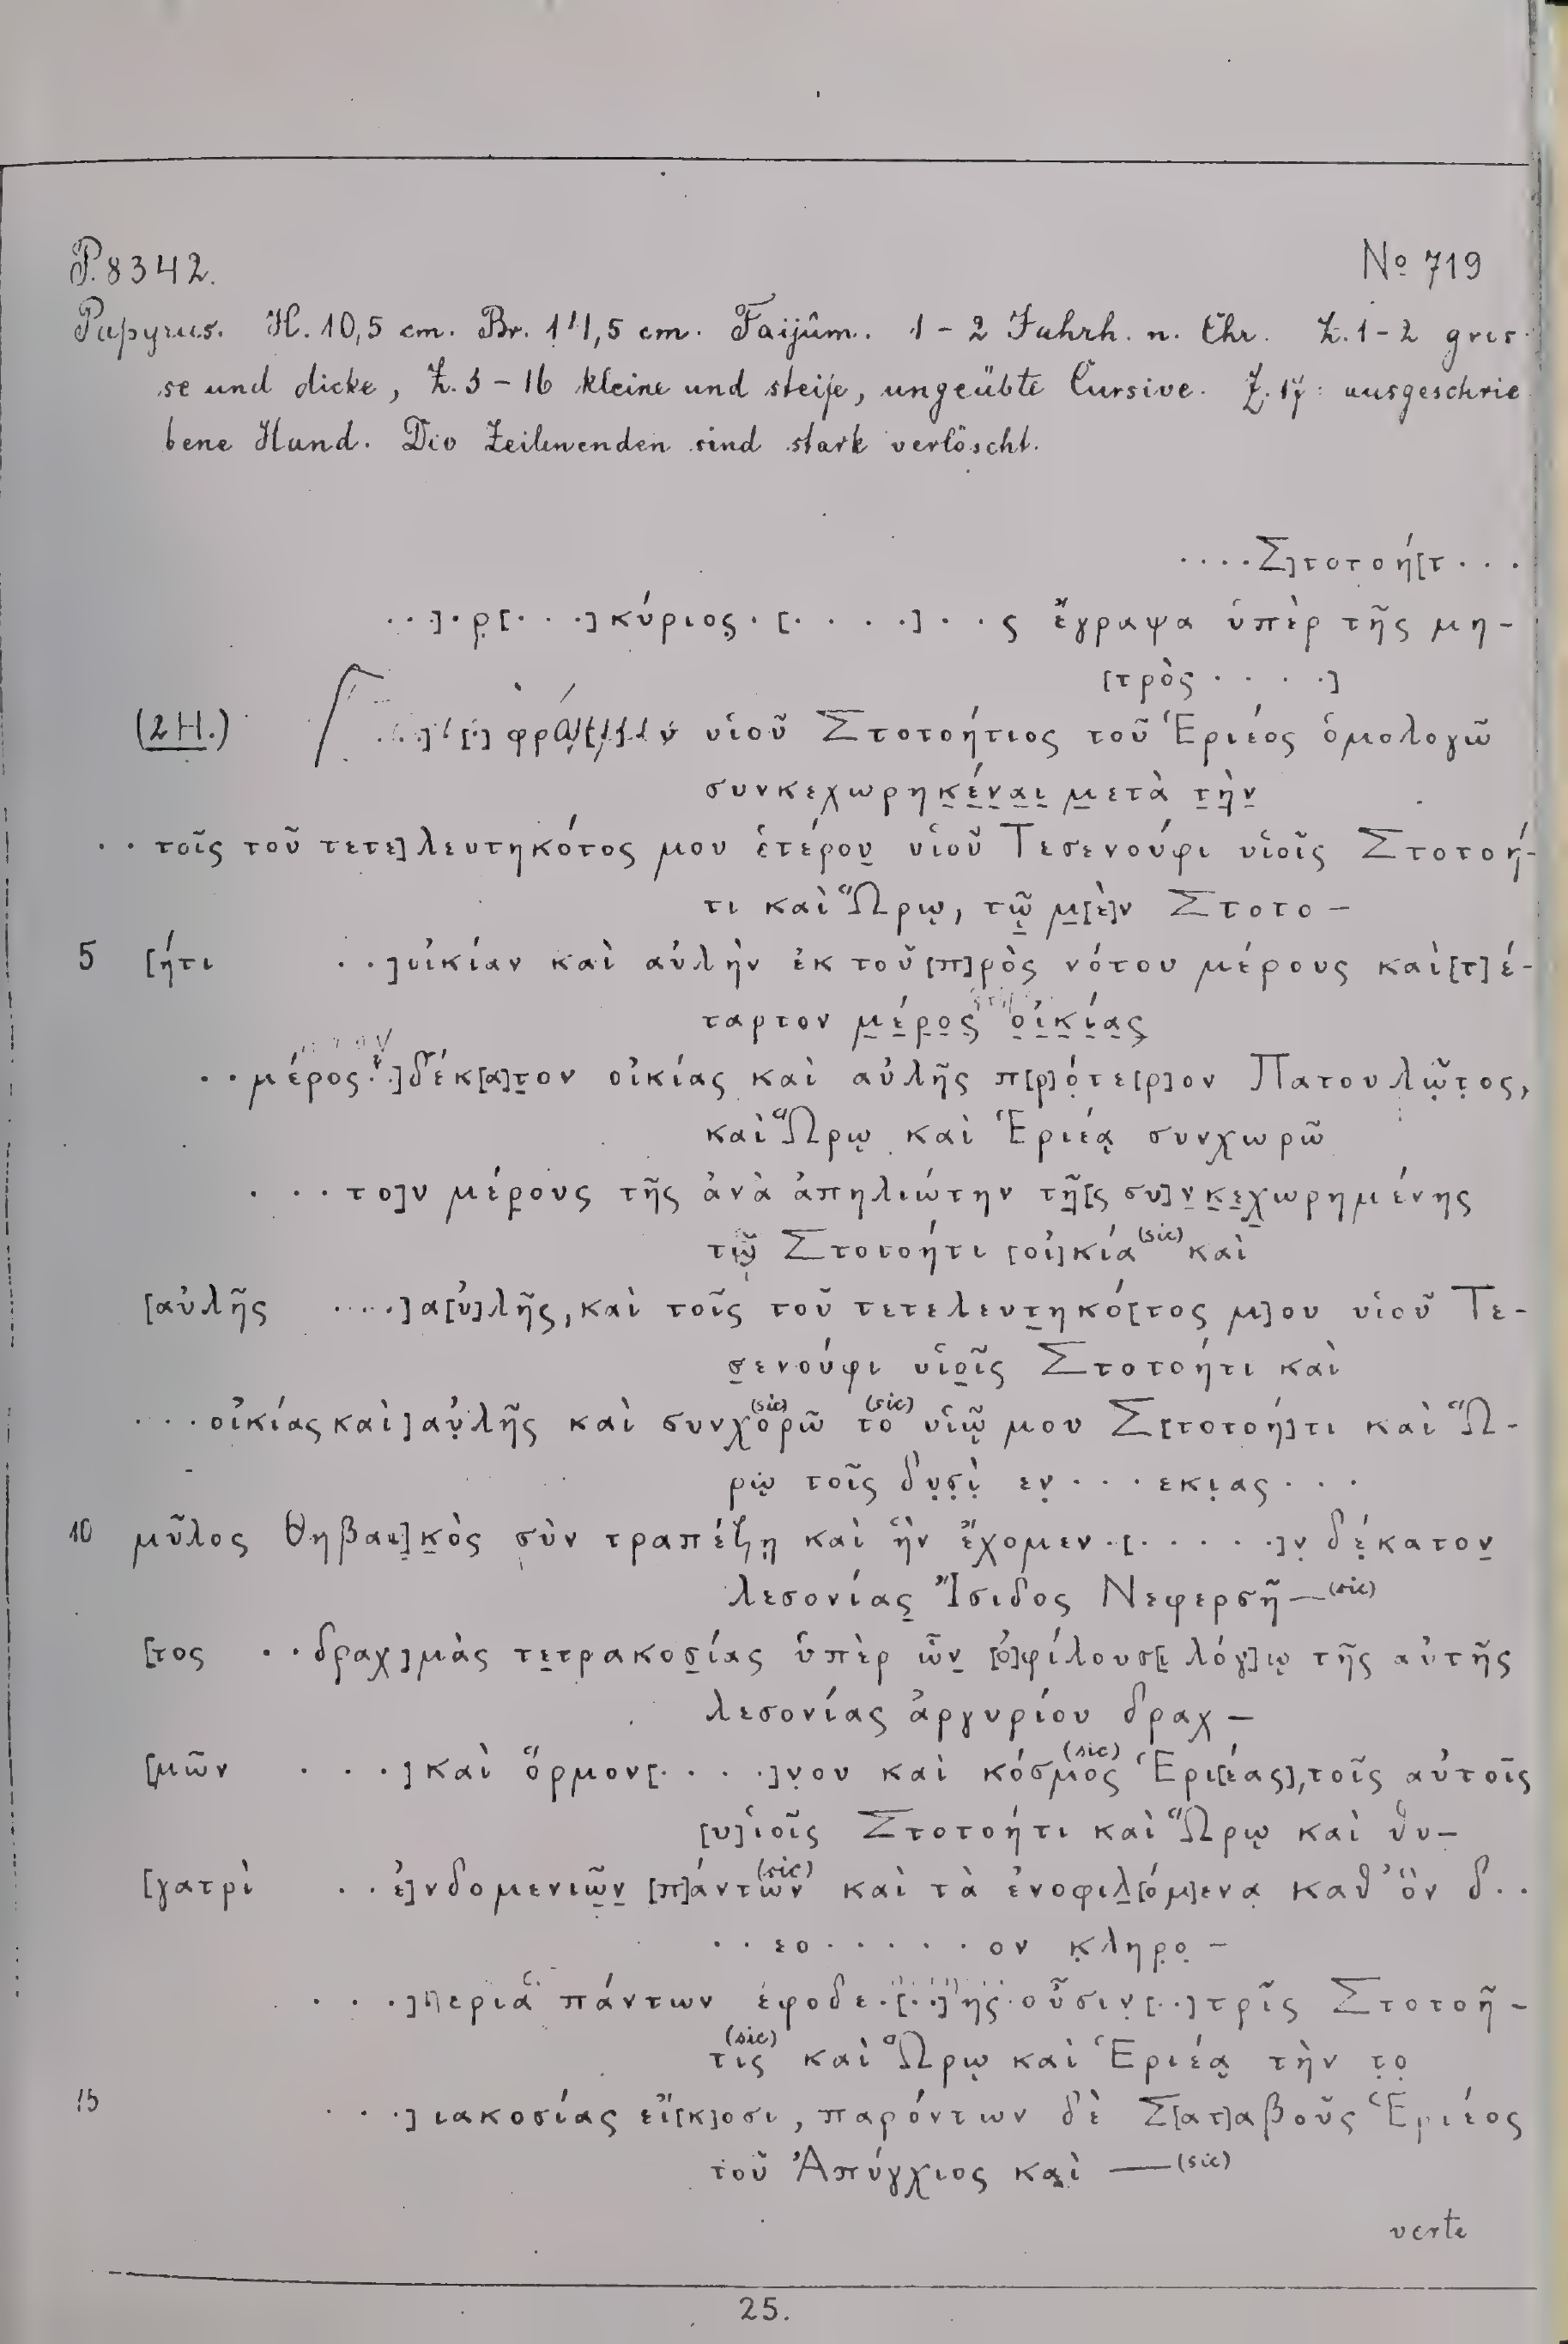 P. 8342. No 719
Papyrus. H. 10,5 cm. Br. 11,5 cm. Faijûm. 1 – 2 Jahrh. n. Chr. Z. 1 – 2 gros-
se und dicke, Z. 3 – 16 kleine und steife, ungeübte Cursive. Z. 17: ausgeschrie
bene Hand. Die Zeilenenden sind stark verlöscht.
. . . . Σ]τοτοή[τ . . .
. . .] . ρ̣[ . . . .] κύριος̣ . [ . . . . .] . . ς ἔγραψα ὑπὲρ τῆς μη-
[τρὸς . . . . .]
(2 H.) υἱοῦ Στοτοήτιος τοῦ Ἑριέος ὁμολογῶ
συνκεχωρηκέναι μετὰ τὴν
. . τοῖς τοῦ τετε]λευτηκότος μου ἑτέρου υἱοῦ Τεσενούφι υἱοῖς Στοτοή-
τι καὶ Ὥρῳ, τῷ μ[ὲ]ν Στοτο –
5 [ήτι . . .]οἰκίαν καὶ αὐλὴν ἐκ τοῦ [π]ρὸς νότου μέρους καὶ [τ]έ-
ταρτον μέρος οἰκίας
. . μέρος . .]δέκ[α]τον οἰκίας καὶ αὐλῆς π[ρ]ότε[ρ]ον Πατουλῶ̣τ̣ος,
καὶ Ὥρῳ καὶ Ἑριέᾳ συνχωρῶ
. . . το]ν μέρους τῆς ἀνὰ ἀπηλιώτην τῆ[ς συ]νκεχωρημένης
τῷ Στοτοήτι [οἰ]κία (sic) καὶ
[αὐλῆς . . . . .] α[ὐ]λῆς, καὶ τοῖς τοῦ τετελευτηκό[τος μ]ου υἱοῦ Τε-
σενούφι υἱοῖς Στοτοήτι καὶ
. . . οἰκίας καὶ] αὐ̣λῆς καὶ συνχορῶ (sic) το (sic) υἱῷ μου Σ[τοτοή]τι καὶ Ὥ-
ρῳ τοῖς δυ̣σ̣ὶ̣ εν̣ . . . εκι̣ας . . .
10 μῦλος Θηβαι]κὸς σὺν τραπέζῃ καὶ ἣν ἔχομεν . [ . . . . . .]ν̣ δέ̣κατον
λεσονίας Ἴσιδος Νεφερσῆ — (sic)
[τος . . δραχ]μὰς τετρακοσίας ὑπὲρ ὧν [ὀ]φίλουσ[ι λόγ]ῳ τῆς αὐτῆς
λεσονίας ἀργυρίου δραχ –
[μῶν . . . .] καὶ ὅρμον[ . . . . .]ν̣ου καὶ κόσμος (sic) Ἑρι[έας], τοῖς αὐτοῖς
[υ]ἱοῖς Στοτοήτι καὶ Ὥρῳ καὶ θυ –
[γατρὶ . . ἐ]νδομενιῶν [π]άντων (sic) καὶ τὰ ἐνοφιλ[όμ]ενα̣ καθ’ ὃν δ . .
. . εο . . . . . . ον κ̣ληρ̣ο̣ –
. . .] πάντων οὖσιν̣[ . .] τρῖς Στοτοῆ –
τις (sic) καὶ Ὥρῳ καὶ Ἑριέᾳ τὴν τ̣ο̣
15 . . .]ιακοσίας εἴ[κ]οσι, παρόντων δὲ Σ[ατ]αβοῦς Ἑριέος
τοῦ Ἀπύγχιος καὶ — (sic)
verte
25.